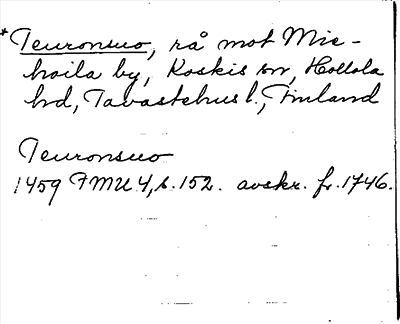 *Teuronsuo, rå mot Mie-
hoila by, Koskis sn, Hollola
hd, Tavastehus l., Finland
Teuronsuo
1459 FMU 4, s. 152. avskr. fr. 1746.